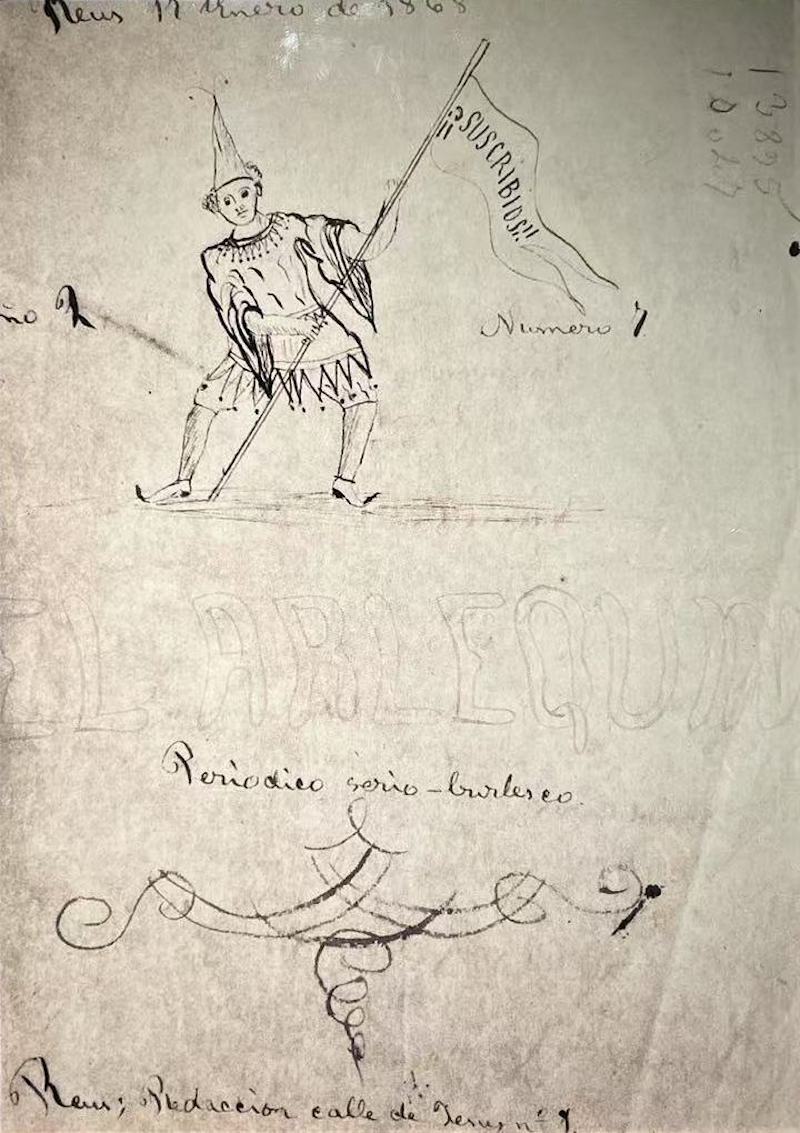 Reus Enero de 1868
¡¡SUSCRIBIOS!!
Numero
EL ARLEQUIN
Periodico serio-burlesco.
Reus; Redaccion calle de Jesus nº